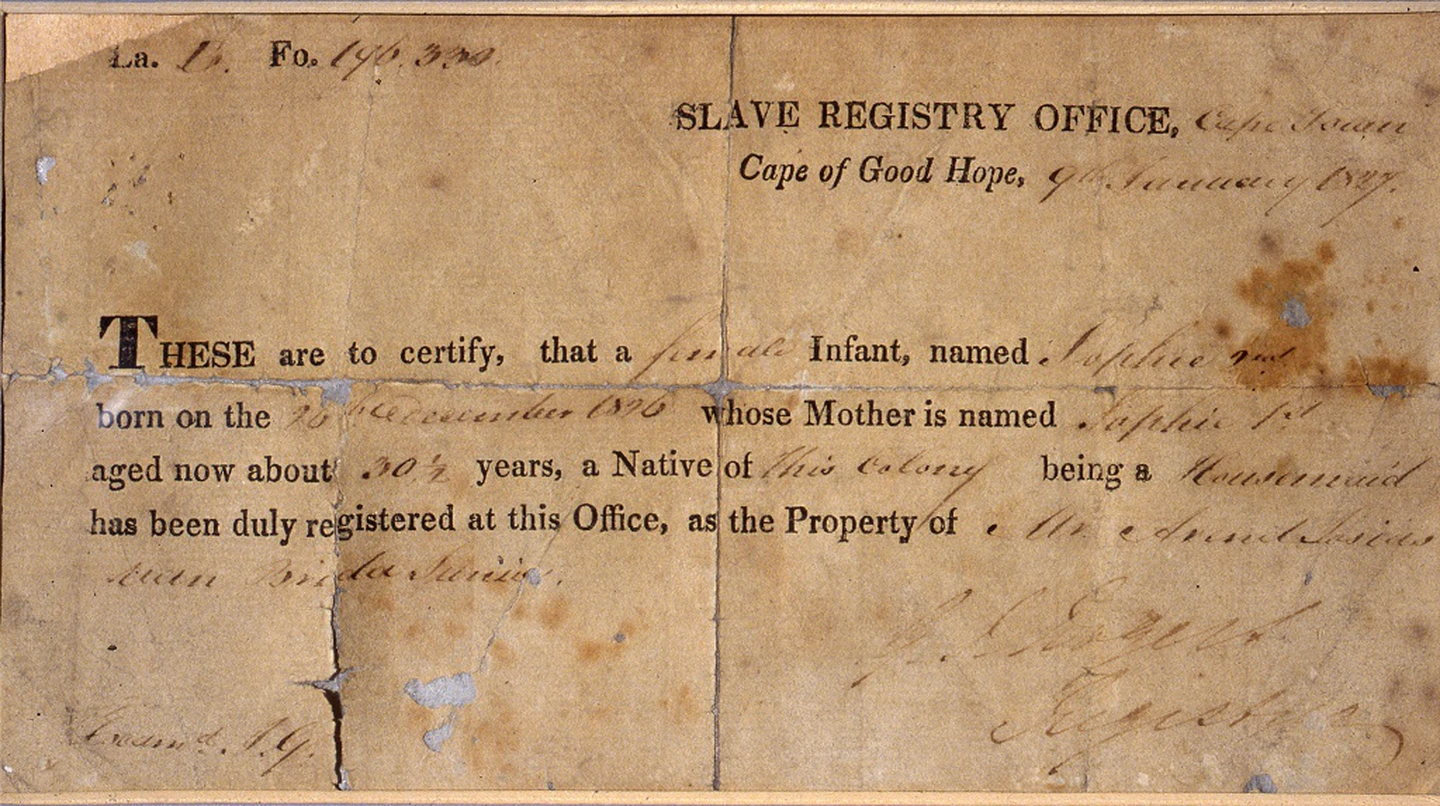 La. B. Fo. 196.330.
SLAVE REGISTRY OFFICE, Cape Town
Cape of Good Hope, 9th January 1827.
THESE are to certify, that a female Infant, named Sophie 2nd
born on the 26th December 1826 whose Mother is named Sophie 1st
aged now about 30½ years, a Native of this Colony being a Housemaid
has been duly registered at this Office, as the Property of Mr.
van Breda Junior.
Registrar
Examd.